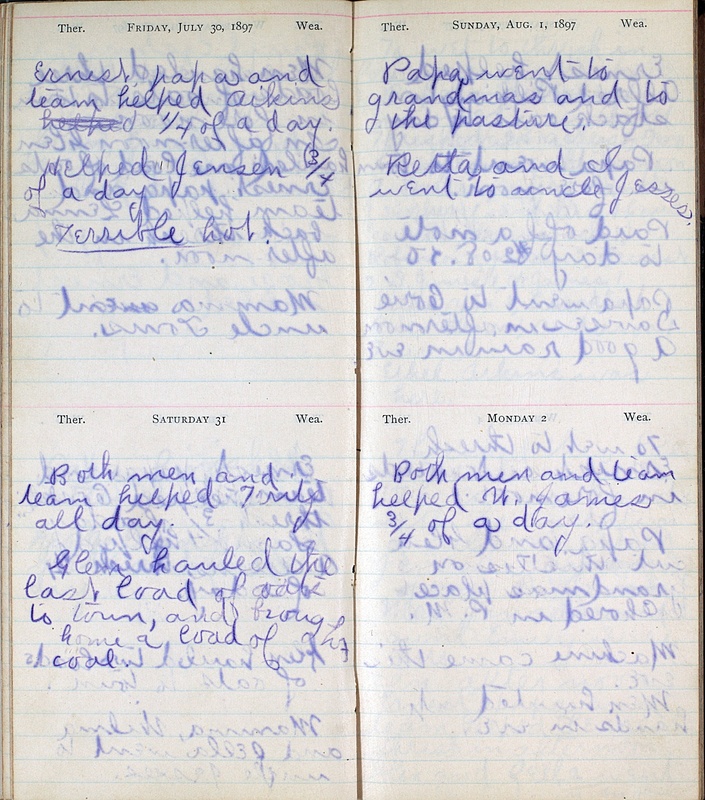 Ther. FRIDAY, JULY 30, 1897 Wea.
Ernest papa and
team helped Aikins
helped 1/4 of a day.
Helped Jensen 3/4
of a day
Terrible hot.
Ther. SATURDAY 31 Wea.
Both men and
team helped
all day.
Glen hauled the
last load of oats
to town, and brought
home a load of
coal
Ther. SUNDAY, AUG. 1, 1897 Wea.
Papa went to
grandmas and to
the pasture.
Retta and I
went to uncle Jesses.
Ther. MONDAY 2 Wea.
Both men and team
helped W. James
3/4 of a day.